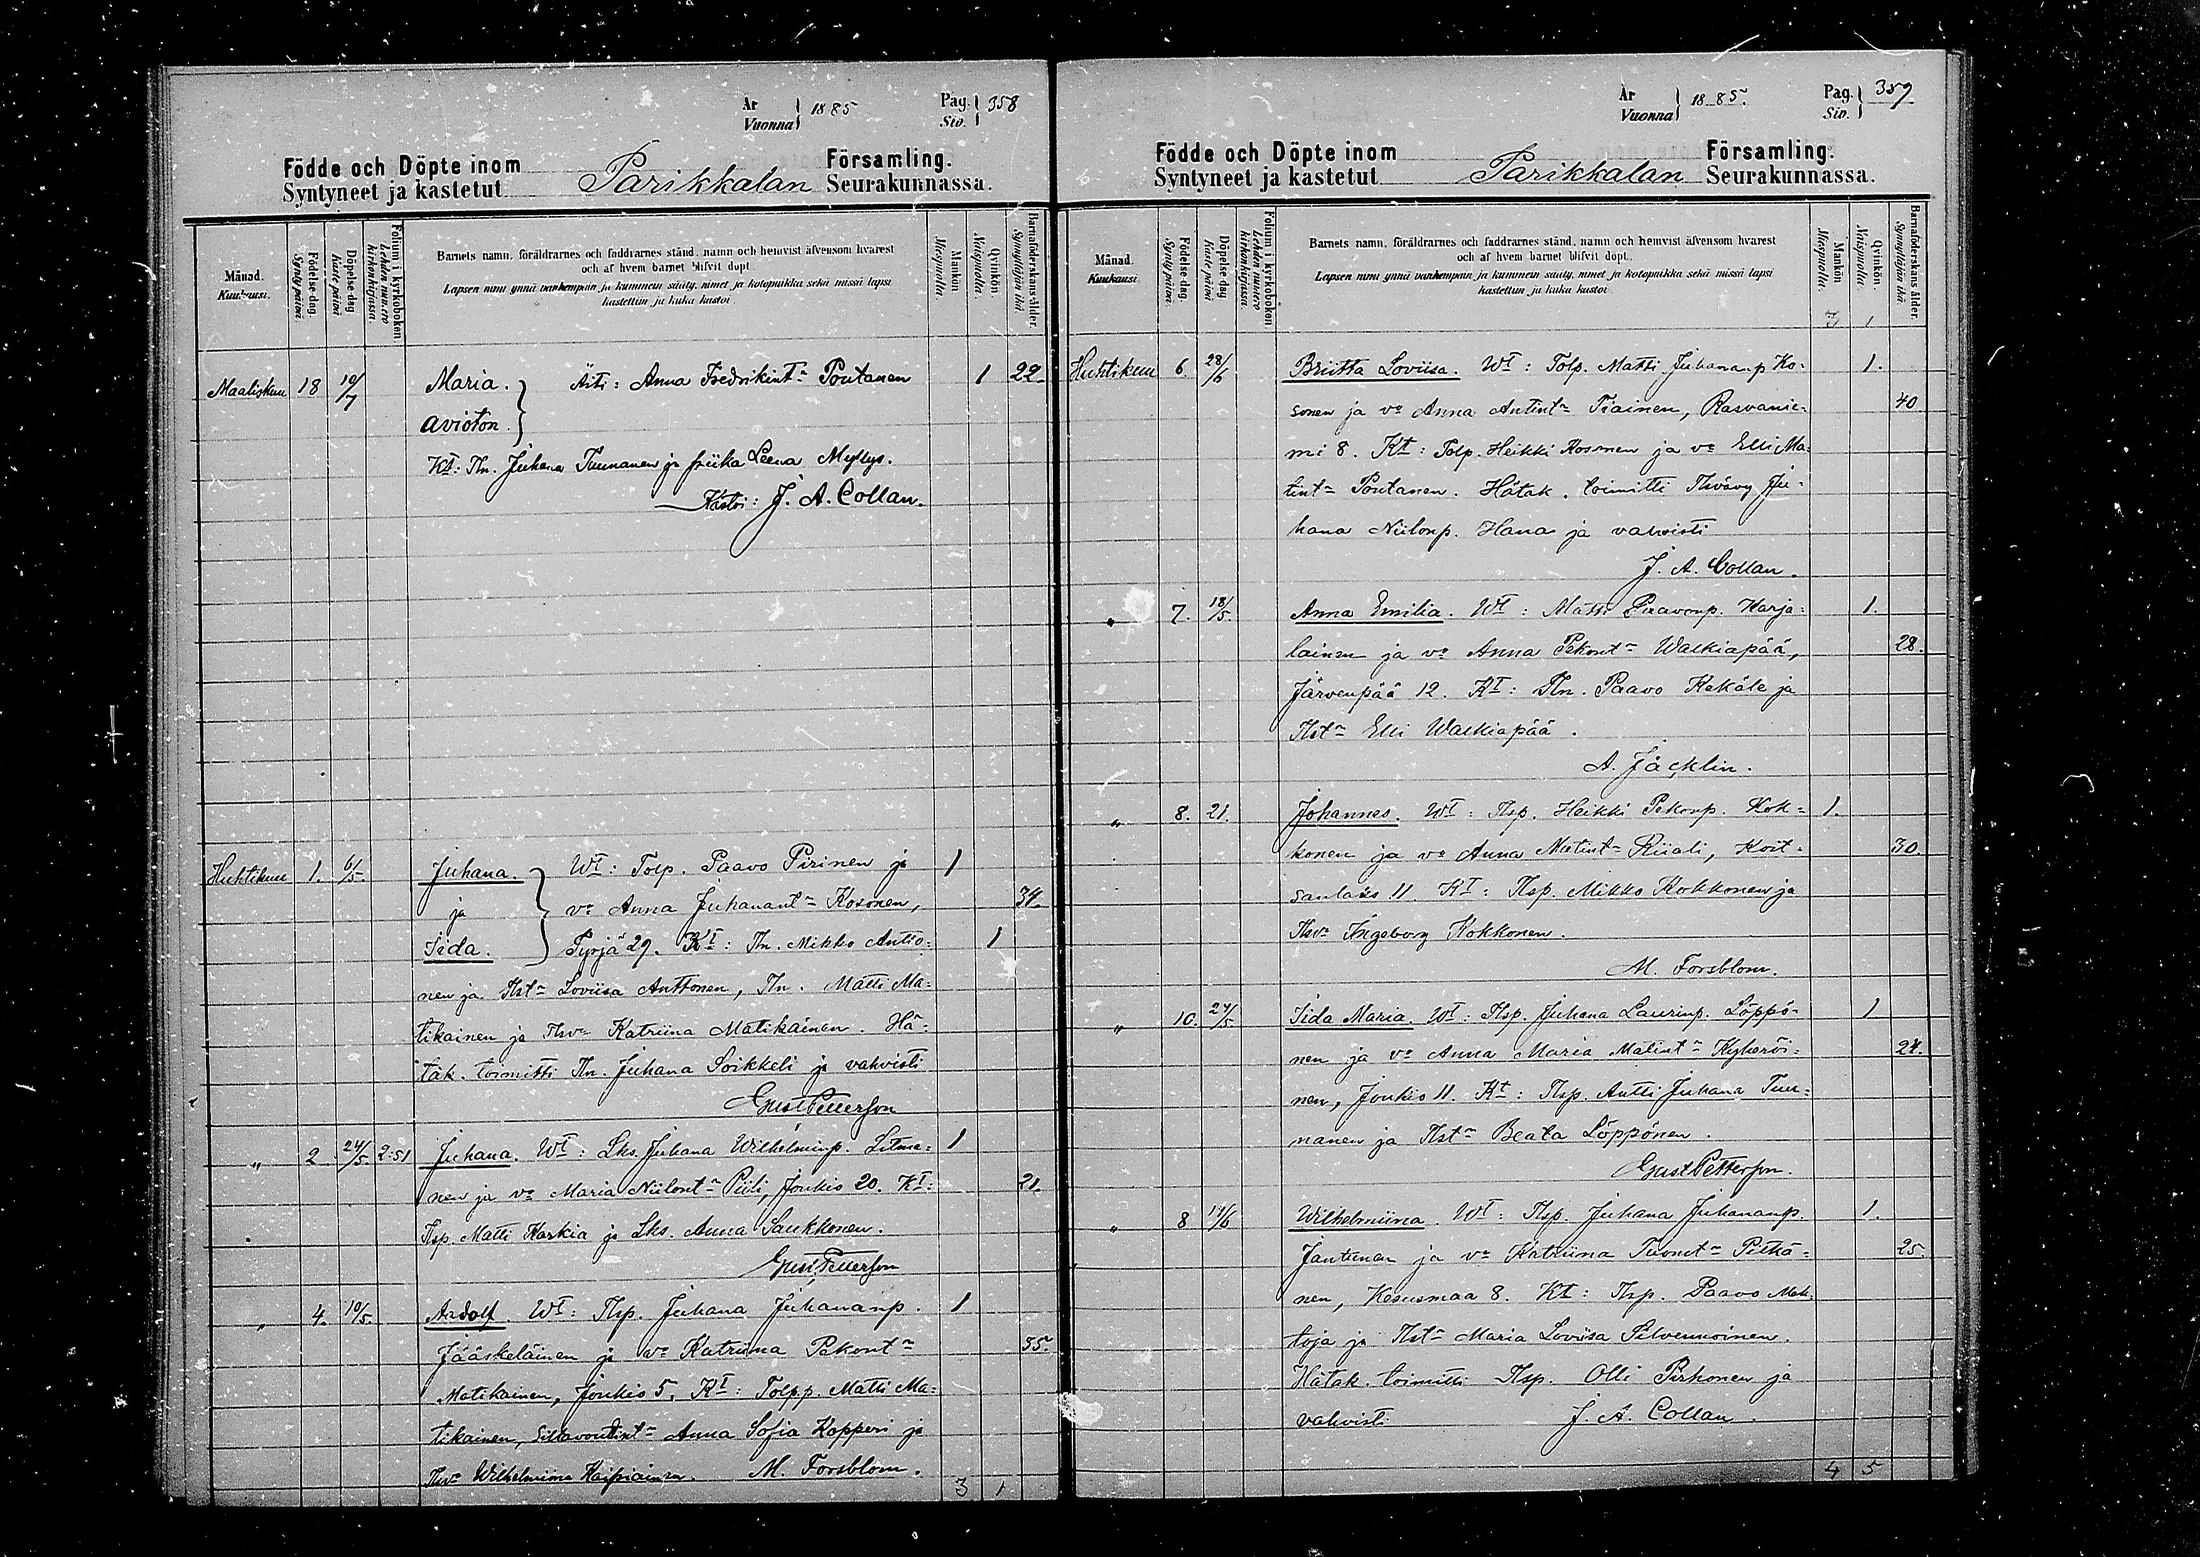 År Vuonna } 1885 Pag. Siv. } 358
Födde och Döpte inom Parikkalan Församling.
Syntyneet ja kastetut Seurakunnassa.
Månad. Kuukausi.
Födelse-dag. Synty päivä.
Döpelse-dag. Kaste päivä
Folium i kyrkoboken Lehden numero kirkonkirjassa.
Barnets namn, föräldrarnes och faddrarnes stånd, namn och hemvist äfvensom hvarest
och af hvem barnet blifvit döpt.
Lapsen nimi ynnä vanhempain ja kummein sääty, nimet ja kotopaikka sekä missä lapsi
kastettun ja kuka kastoi
Mankön Miespuolta.
Qvinkön. Naispuolta.
Barnaföderskans ålder. Synnyttäjän ikä.
Maaliskuu 18 10/7 Maria. } Äiti: Anna Fredrikint~ Poutanen 1 22.
avioton.
Kt: Tln. Juhana Tuunanen ja piika Leena Myllys.
Kastoi: J. A. Collan.
Huhtikuu 1. 6/5. Juhana. } Wt: Tolp. Paavo Pirinen ja 1
ja v~ Anna Juhanant~ Kosonen, 34.
Iida. Tyrjä 29. Kt: Tln. Mikko Antto= 1
nen ja Tlst~ Loviisa Anttonen, Tln. Matti Ma=
tikainen ja Tlv~ Katriina Matikainen. Hä=
täk. toimitti Tln. Juhana Soikkeli ja vahvisti
Gust Petterson
" 2. 24/5. 2.51 Juhana. Wt: Lks. Juhana Wilhelminp. Litma=  1
nen ja v~ Maria Niilont~ Piili, Joukio 20. Kt: 21.
Tlsp. Matti Karkia ja Lks. Anna Saukkonen.
Gust Petterson
" 4. 10/5. Aadolf. Wt: Tlsp. Juhana Juhananp. 1
Jääskeläinen ja v~ Katriina Pekont~ 35.
Matikainen, Joukio 5. Kt: Tolp.p. Matti Ma=
tikainen, Siltavoutint~ Anna Sofia Kopperi ja
Tlv~ Wilhelmiina Haipiainen. M. Forsblom.
3 1
År Vuonna } 1885. Pag. Siv. } 359
Födde och Döpte inom Parikkalan Församling.
Syntyneet ja kastetut Seurakunnassa.
Månad. Kuukausi.
Födelse-dag. Synty päivä.
Döpelse-dag Kaste päivä
Folium i kyrkoboken Lehden numero kirkonkirjassa.
Barnets namn, föräldrarnes och faddrarnes stånd, namn och hemvist äfvensom hvarest
och af hvem barnet blifvit döpt.
Lapsen nimi ynnä vanhempain ja kummein sääty, nimet ja kotopaikka sekä missä lapsi
kastettun ja kuka kastoi
Mankön Miespuolta.
Qvinkön. Naispuolta.
Barnaföderskans ålder. Synnyttäjän ikä.
Huhtikuu 6. 28/6 Briitta Loviisa. Wt: Tolp. Matti Juhananp Ko= 1.
sonen ja v~ Anna Antint~ Tiainen, Rasvanie= 40
mi 8. Kt: Tolp. Heikki Kosonen ja v~ Elli Ma=
tint~ Poutanen. Hätäk. toimitti Tlvävy Ju=
hana Niilonp. Hana ja vahvisti
J. A. Collan.
" 7. 18/5. Anna Emilia. Wt: Matti Paavonp. Karja= 1.
lainen ja v~ Anna Pekont~ Walkiapää, 28.
Järvenpää 12. Kt: Tln. Paavo Kekäle ja
Tlst~ Elli Walkiapää.
A. Jäcklin.
" 8. 21. Johannes. Wt: Tlsp. Heikki Pekonp. Kok= 1.
konen ja v~ Anna Matint~ Riiali, Koit= 30
sanlaks 11. Kt: Tlsp. Mikko Kokkonen ja
Tlv~ Ingeborg Kokkonen.
M. Forsblom.
" 10. 24/5. Iida Maria. Wt: Tlsp. Juhana Laurinp. Löppö= 1
nen ja v~ Anna Maria Matint~ Kyheröi= 24.
nen, Joukio 11. Kt: Tlsp. Antti Juhana Tuu=
nanen ja Tlst~ Beata Löppönen.
Gust Petterson.
" 8 14/6 Wilhelmiina. Wt: Tlsp. Juhana Juhananp. 1.
Jantunen ja v~ Katriina Tuomt~ Pitkä= 25.
nen, Kesusmaa 8. Kt: Tlsp. Paavo Mat=
toja ja Tlst~ Maria Loviisa Silvennoinen.
Hätäk. toimitti Tlsp. Olli Pirhonen ja
vahvisti J. A. Collan.
4 5